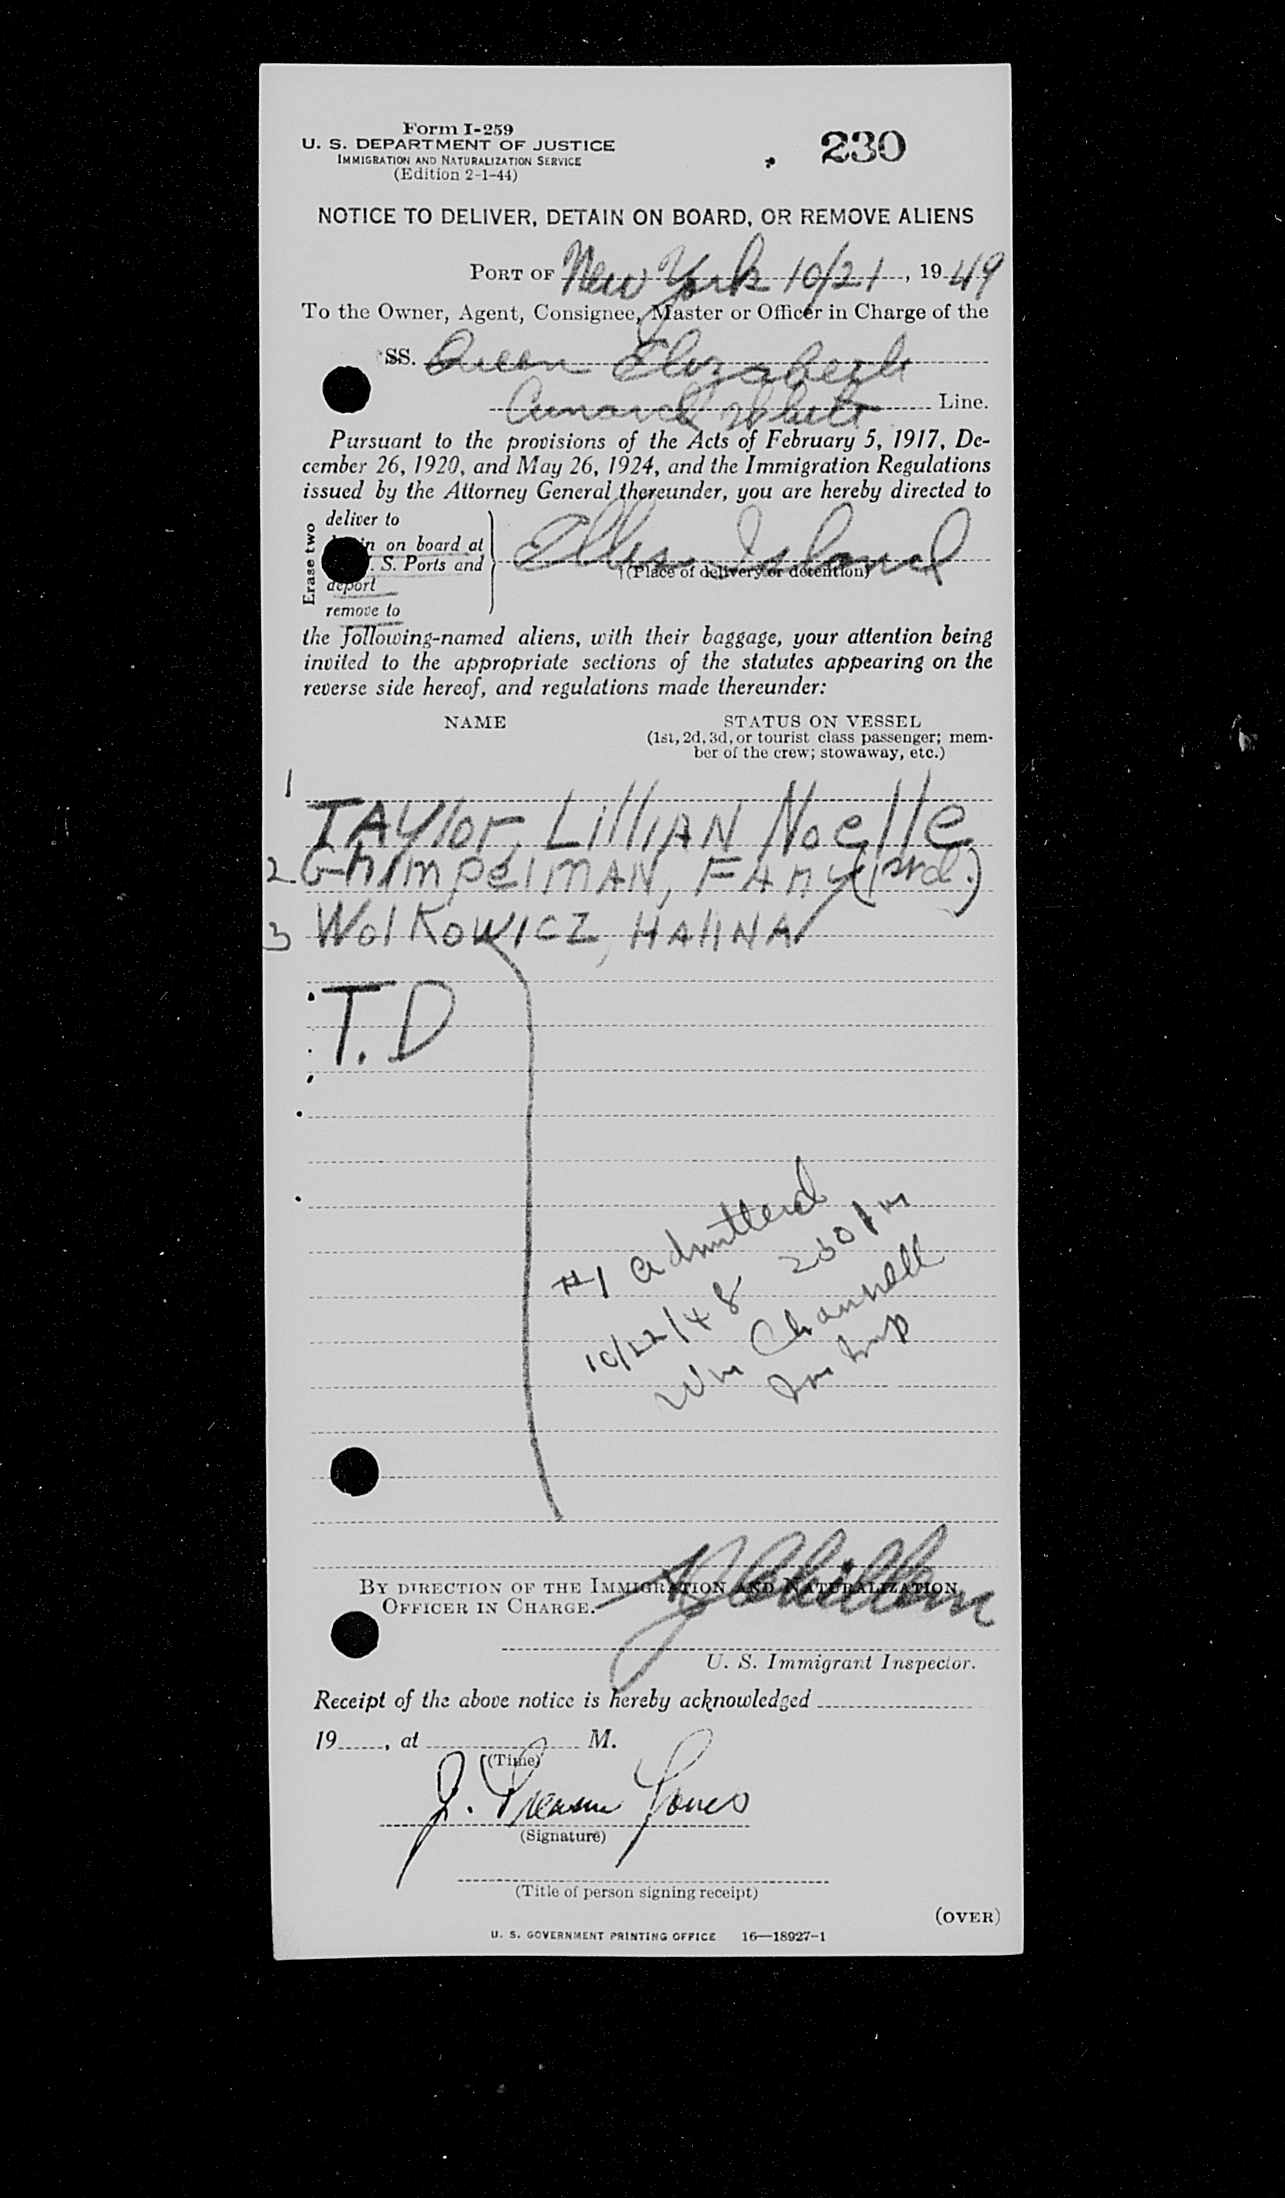 Form I-259
U. S. DEPARTMENT OF JUSTICE
IMMIGRATION AND NATURALIZATION SERVICE
(Edition 2-1-44)
230
NOTICE TO DELIVER, DETAIN ON BOARD, OR REMOVE ALIENS
PORT OF New York 10/21, 1949
To the Owner, Agent, Consignee, Master or Officer in Charge of the
SS. Queen Elizabeth
Cunard White Line.
Pursuant to the provisions of the Acts of February 5, 1917, De-
cember 26, 1920, and May 26, 1924, and the Immigration Regulations
issued by the Attorney General thereunder, you are hereby directed to
Erase two
deliver to
on board at
S. Ports and
deport
remove to
Ellis Island
(Place of delivery or detention)
the following-named aliens, with their baggage, your attention being
invited to the appropriate sections of the statutes appearing on the
reverse side hereof, and regulations made thereunder:
NAME STATUS ON VESSEL
(1st, 2d, 3d, or tourist class passenger; mem-
ber of the crew; stowaway, etc.)
1 TAYlor, LilliAN Noelle
2 GhimpelMAN, FANY
3 WolKowICZ, HAliNA
T.D
#1 admitted
10/22/48 200 pm
Wm Channell
Imm Insp
BY DIRECTION OF THE IMMIGRATION AND NATURALIZATION
OFFICER IN CHARGE.
U. S. Immigrant Inspector.
Receipt of the above notice is hereby acknowledged
19, at M.
(Time)
J. Jones
(Signature)
(Title of person signing receipt)
(OVER)
U. S. GOVERNMENT PRINTING OFFICE 16—18927-1